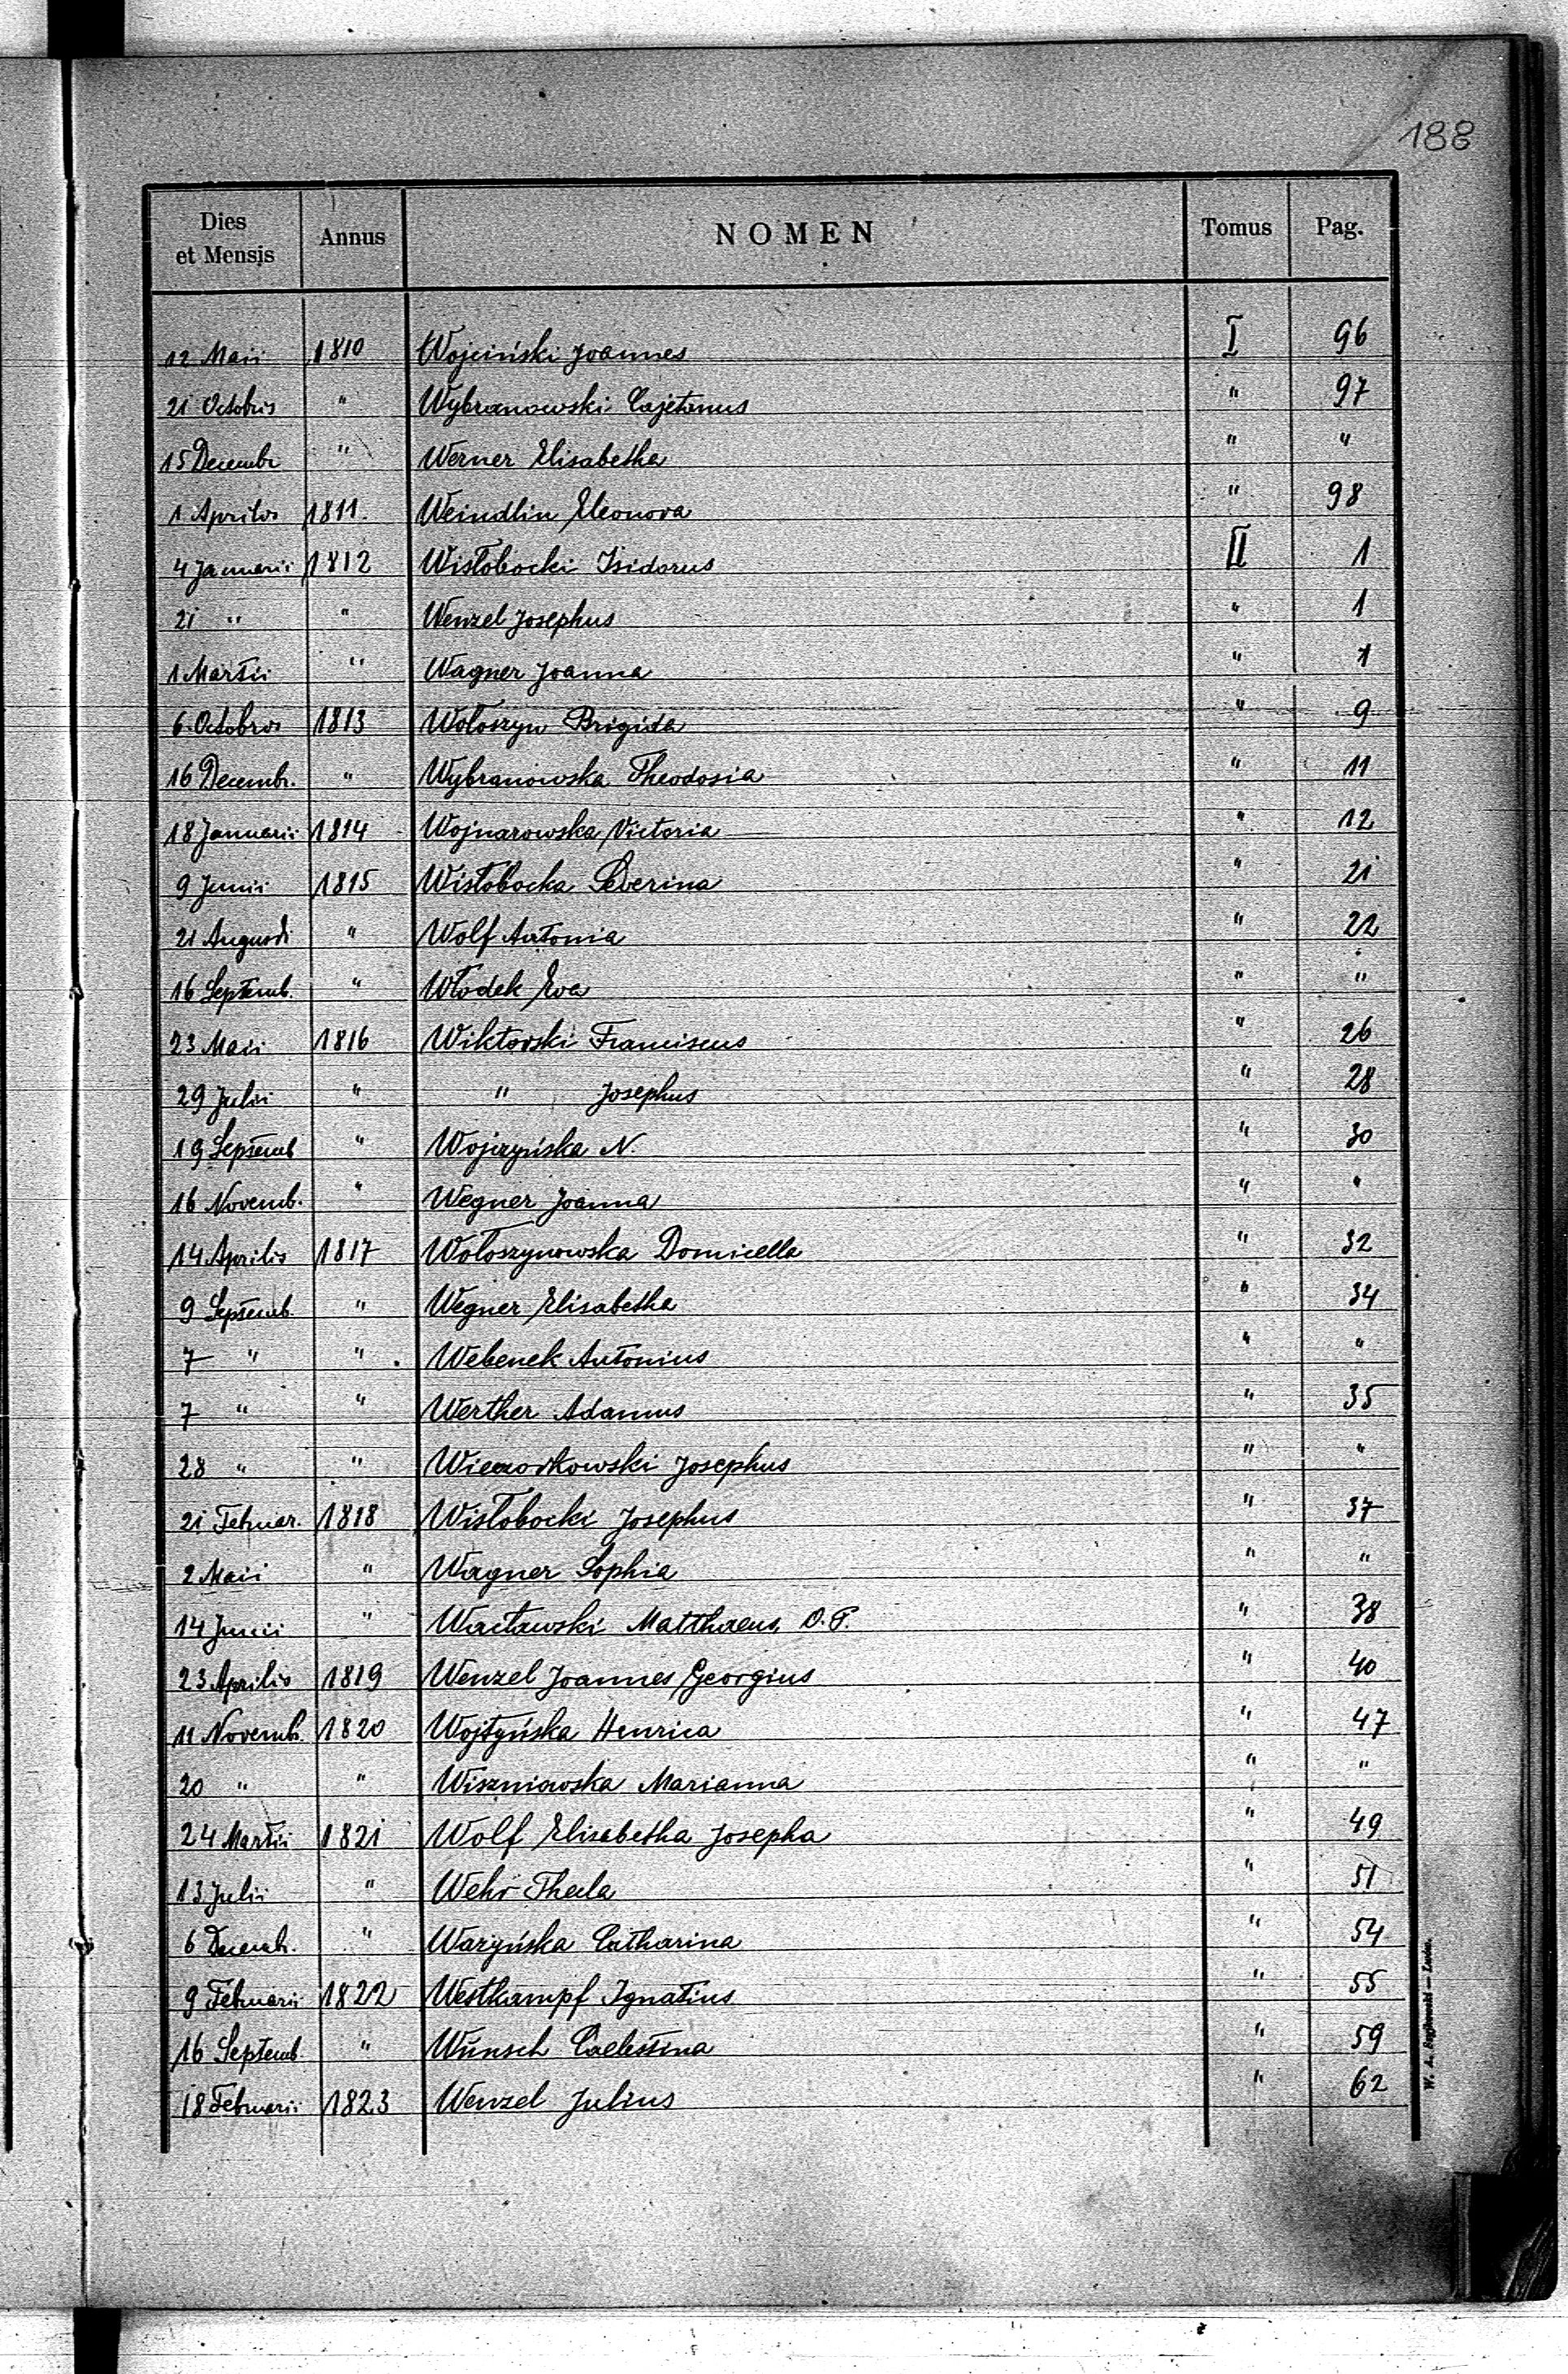 188
Dies et Mensis Annus NOMEN Tomus Pag.
12 Maii 1810 Wojciński Joannes I 96
21 Octobris " Wybranowski Cajetanus " 97
15 Decembr " Werner Elisabetha " "
1 Aprilis 1811. Weindlin Eleonora " 98
4 Januarii 1812 Wisłobocki Isidorus II 1
21 " " Wenzel Josephus " 1
1 Martii " Wagner Joanna " 1
6. Octobris 1813 Wołoszyn Brigida " 9
16 Decembr. " Wybranowska Theodosia " 11
18 Januarii 1814 Wojnarowska Victoria " 12
9 Junii 1815 Wisłobocka Severina " 21
21 Augusti " Wolf Antonia " 22
16 Septemb. " Włodek Eva " "
23 Maii 1816 Wiktorski Franciscus " 26
29 Julii " " Josephus " 28
19 Septemb " Wojzyńska N. " 30
16 Novemb. " Wegner Joanna " "
14 Aprilis 1817 Wołoszynowska Domicella " 32
9 Septemb " Wegner Elisabetha " 34
7 " " Webenek Antonius " "
7 " " Werther Adamus " 35
28 " " Wieczorkowski Josephus " "
21 Februar. 1818 Wisłobocki Josephus " 37
2 Maii " Wagner Sophia " "
14 Junii " Wacławski Matthaeus O.P. " 38
23 Aprilis 1819 Wenzel Joannes Georgius " 40
11 Novemb. 1820 Wojtyńska Henrica " 47
20 " " Wiszniowska Marianna " "
24 Martii 1821 Wolf Elisabetha Josepha " 49
13 Julii " Wehr Thecla " 51
6 Decemb. " Warzyńska Catharina " 54
9 Februarii 1822 Westkampf Ignatius " 55
16 Septemb " Wünsch Caelestina " 59
18 Februarii 1823 Wenzel Julius " 62